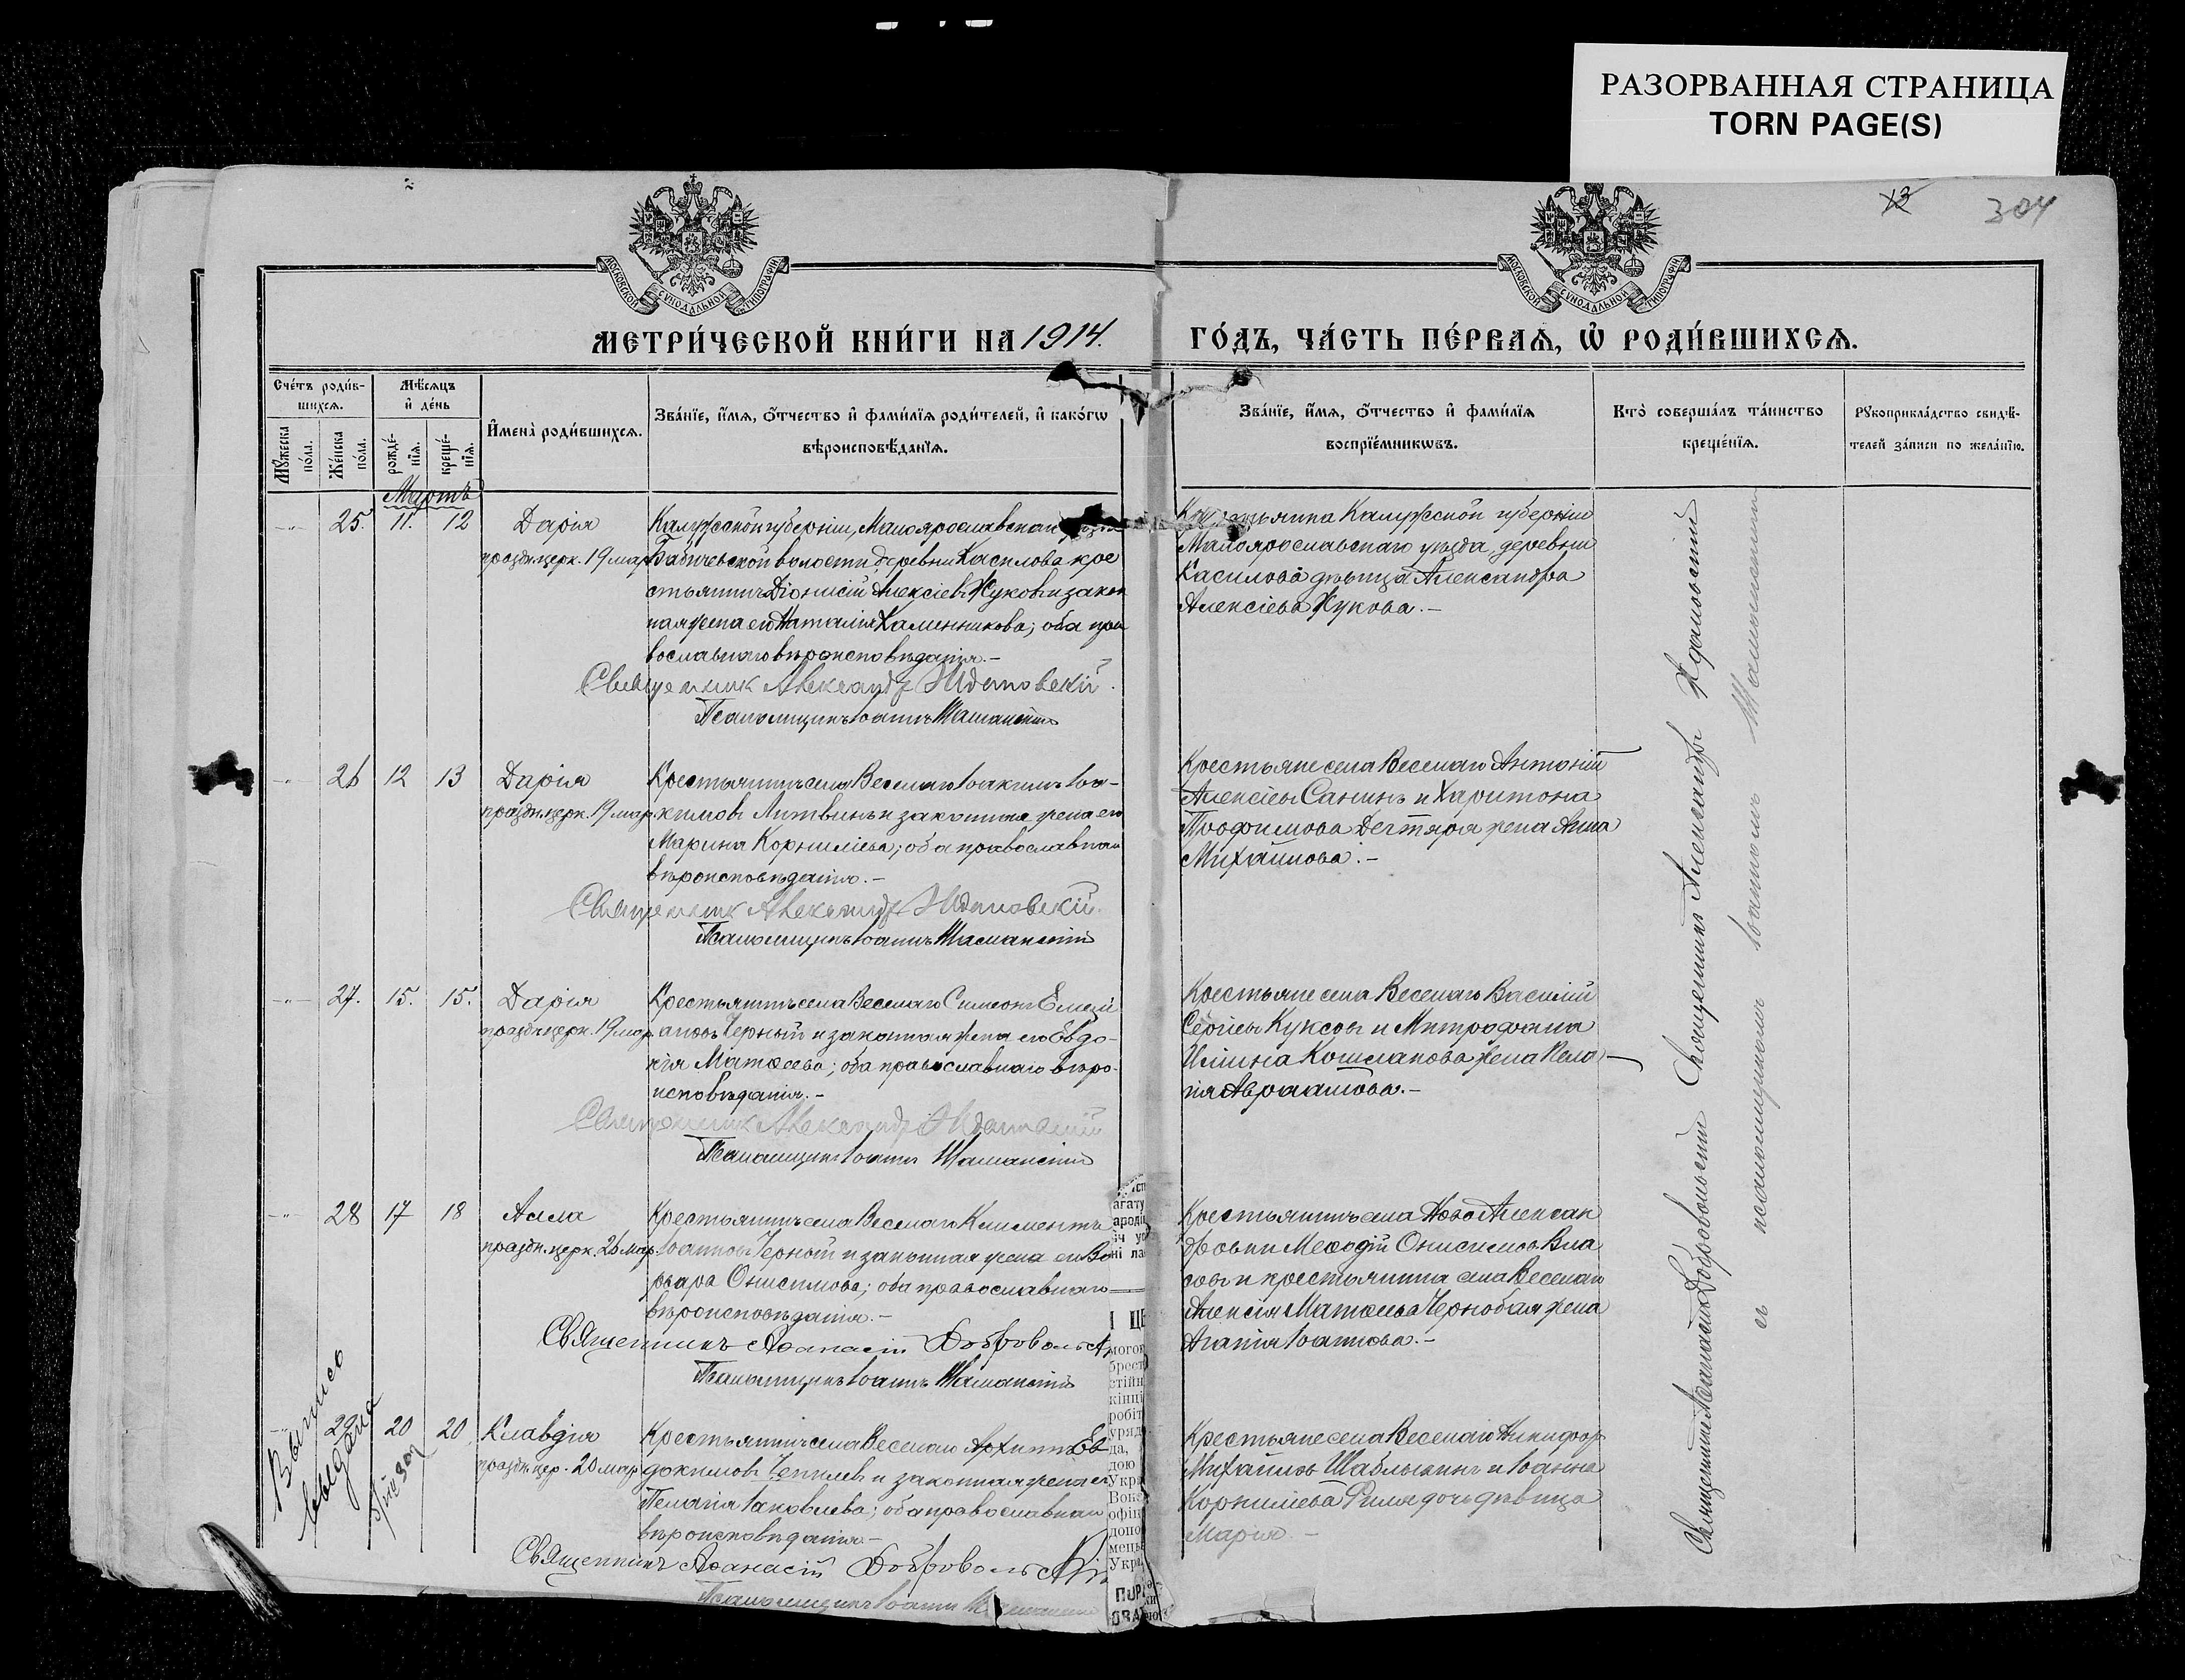 РАЗОРВАННАЯ СТРАНИЦА
TORN PAGE(S)
13
304
МОСКОВСКОЙ СУНОДАЛЬНОЙ ТИПОГРАФИИ
МОСКОВСКОЙ СУНОДАЛЬНОЙ ТИПОГРАФИИ
МЕТРИ́ЧЕСКОЙ КНИ́ГИ НА 1914.
ГО́ДЪ, ЧА́СТЬ ПЕ́РВАѦ, Ѽ РОДИ́ВШИХСѦ.
Сче́тъ роди́в-
шихсѧ.
Мꙋ́жеска по́ла.
Же́нска по́ла.
Мѣ́сѧцъ
и҆ де́нь
рожде́-нїѧ.
креще́-нїѧ.
И҆мена̀ роди́вшихсѧ.
Зва́нїе, и҆́мѧ, ѻ҆́тчество и҆ фами́лїѧ роди́телей, и҆ како́гѡ
вѣроисповѣ́данїѧ.
Зва́нїе, и҆́мѧ, ѻ҆́тчество и҆ фами́лїѧ
воспрїе́мникѡвъ.
Кто̀ соверша́лъ та́инство
креще́нїѧ.
Рꙋкоприкла́дство свидѣ́-
телей за́писи по жела́нїю.
Мартъ
25. 11. 12 Дарія
праздн. церк. 19 мар.
Калужской губерніи, Малоярославскаго
Бабичевской волости деревни Касилова кре
стьянинъ Діонисій Алексіевъ Жуковъ и закон
ная жена его Наталія Каменникова; оба пра
вославнаго вѣроисповѣданія.–
Священник Александр Ждановскій.
Псаломщикъ Іоаннъ Шаманскій
Калужской губерніи
Малоярославскаго уѣзда, деревни
Касилова дѣвица Александра
Алексіева Жукова.–
26 12 13 Дарія
праздн. церк. 19 мар.
Крестьянинъ села Веселаго Іоакимъ Іоа-
кимовъ Литвинъ и законная жена его
Марина Корниліева; оба православнаго
вѣроисповѣданія.–
Священник Александр Ждановскій.
Псаломщикъ Іоаннъ Шаманскій
Крестьяне села Веселаго Антоній
Алексіевъ Санинъ и Харитона
Трофимова Дегтяря жена Анна
Михайлова.–
27. 15. 15. Дарія
праздн. церк. 19 мар.
Крестьянинъ села Веселаго Симеонъ Емели
ановъ Черный и законная жена его Евдо-
кія Матѳеева; оба православнаго вѣро-
исповѣданія.–
Священник Александр Ждановскій
Псаломщикъ Іоаннъ Шаманскій
Крестьяне села Веселаго Василій
Сергіевъ Куксовъ и Митрофана
Ильина Кошланова жена Пела–
гія Авраамова.–
28 17 18 Алла
праздн. церк. 26 мар.
Крестьянинъ села Веселаго Климентъ
Іоанновъ Черный и законная жена его Ва
рвара Онисимова; оба православнаго
вѣроисповѣданія.–
Священникъ Аѳанасій Добровольскі
Псаломщикъ Іоаннъ Шаманскій
Крестьянинъ села Ново Алексан
дровки Меѳодій Онисимовъ Вла
совъ и крестьянина села Веселаго
Алексія Матѳеева Чернобая жена
Агапія Іоаннова.–
29 20 20 Клавдія
праздн. цер. 20 мар
Крестьянинъ села Веселаго Архиппъ Ев
докимовъ Чепилевъ и законная жена его
Пелагія Іаковлева; оба православнаго
вѣроисповѣданія–
Священникъ Аѳанасій Добровольскій
Псаломщикъ Іоаннъ Шаманскій
Крестьяне села Веселаго Никифоръ
Михайловъ Шаблыкинъ и Іоанна
Корниліева Риля дочь дѣвица
Марія.–
Выпись
выдана
Священники Аѳанасій Добровольскій Священникъ Александръ Ждановскій
съ псаломщикомъ Іоанномъ Шаманскимъ